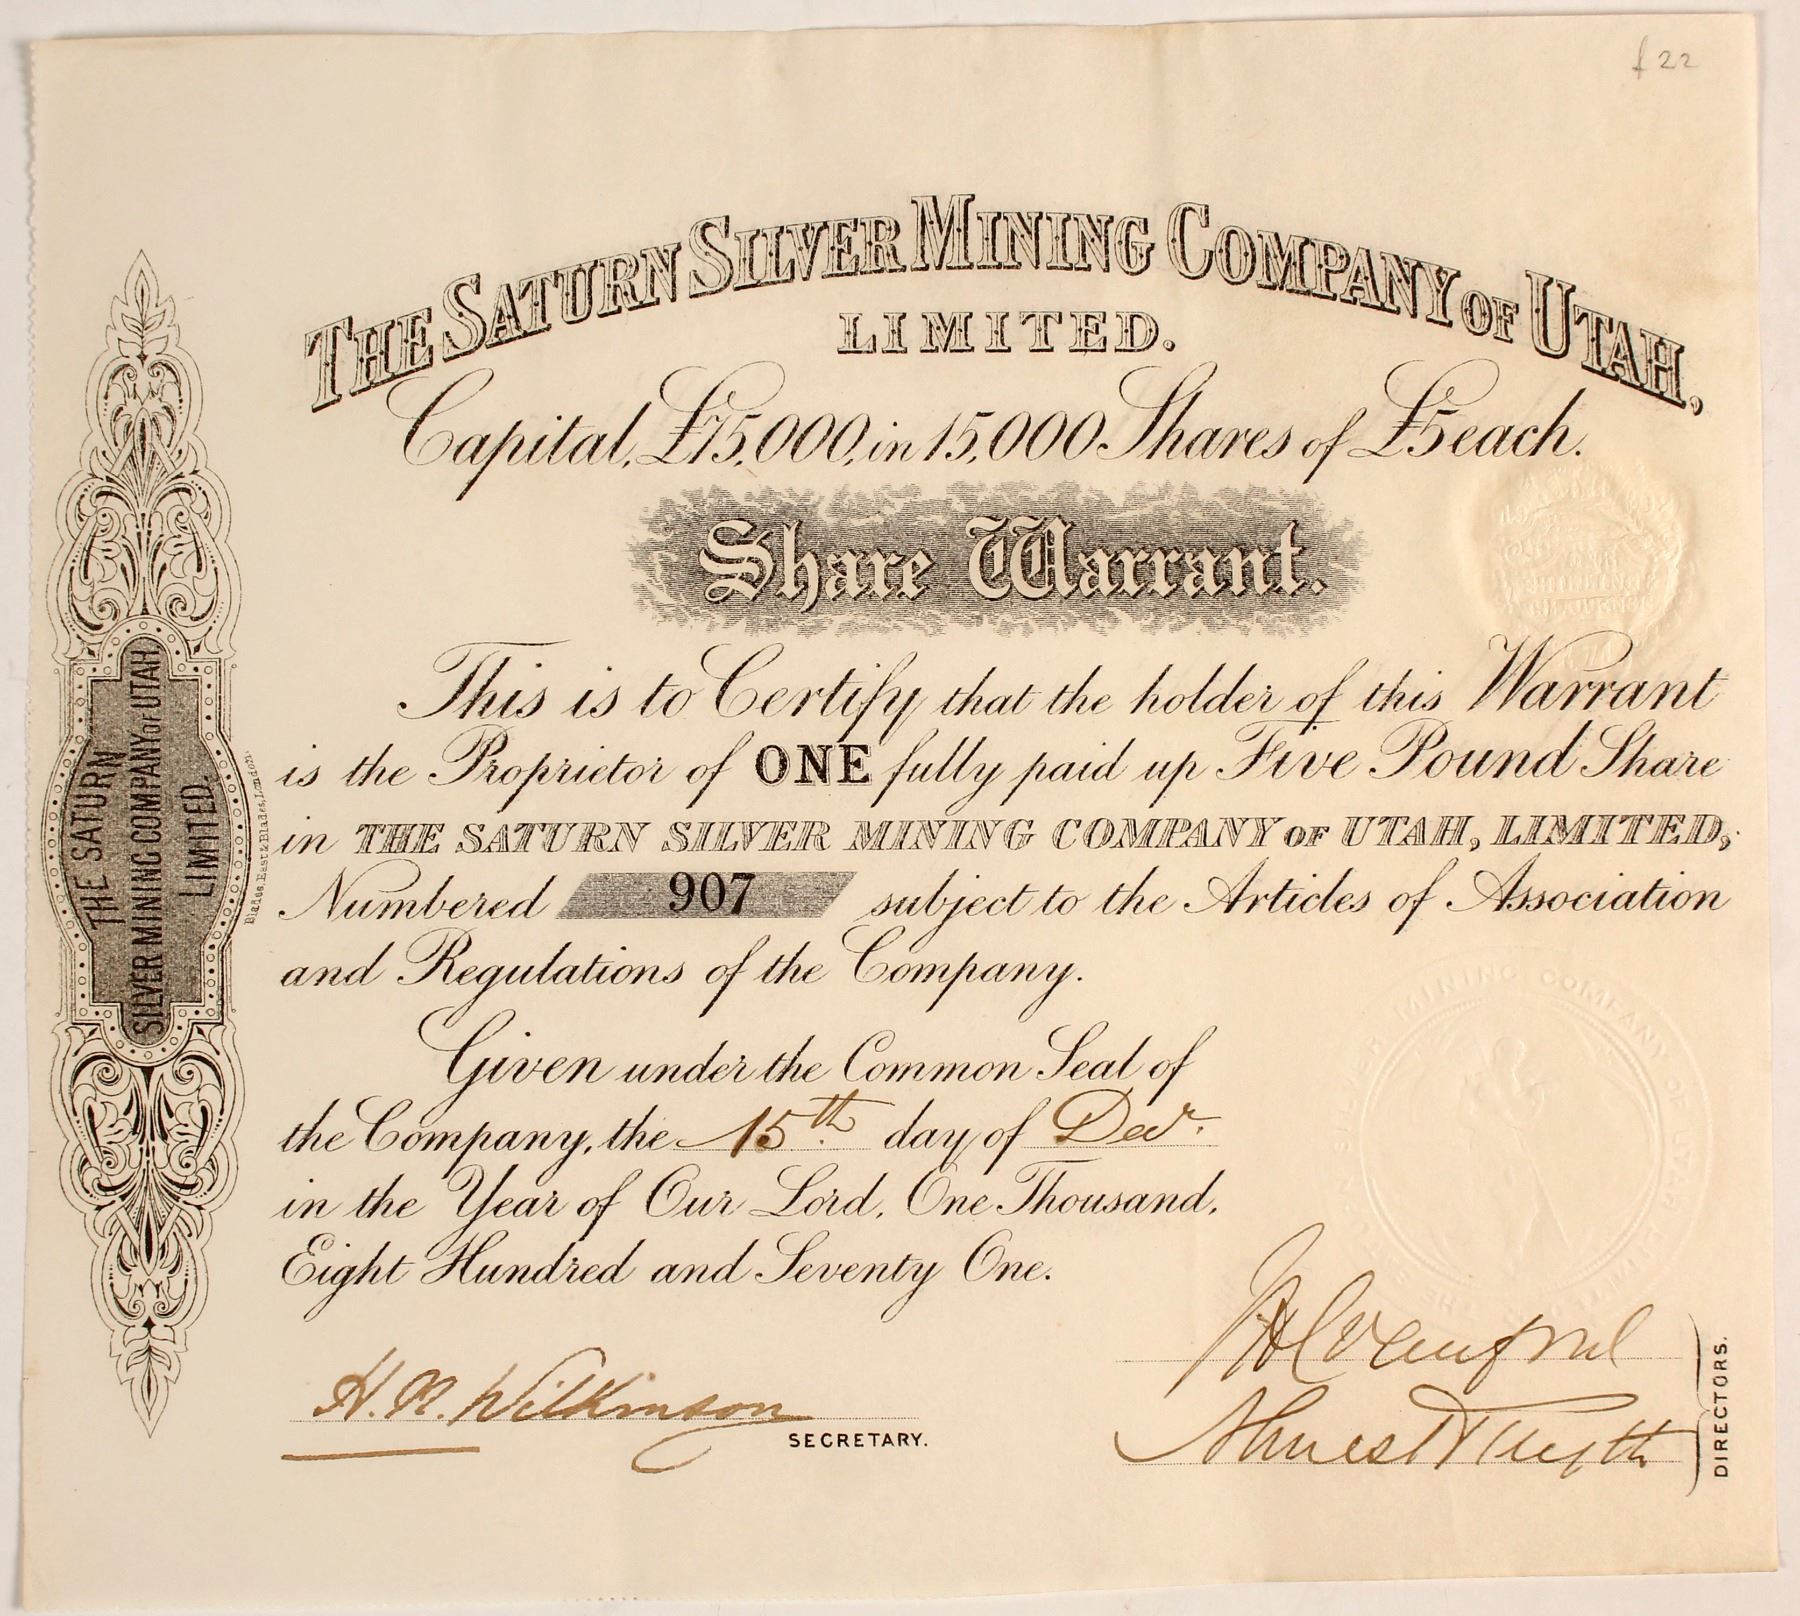 £22
THE SATURN SILVER MINING COMPANY OF UTAH,
LIMITED.
Capital, £75,000, in 15,000 Shares of £5 each.
Share Warrant.
ONE
SHILLING &
SIXPENCE
This is to Certify that the holder of this Warrant
is the Proprietor of ONE fully paid up Five Pound Share
in THE SATURN SILVER MINING COMPANY OF UTAH, LIMITED,
Numbered 907 subject to the Articles of Association
and Regulations of the Company.
Given under the Common Seal of
the Company, the 15th. day of Decr.
in the Year of Our Lord, One Thousand,
Eight Hundred and Seventy One.
MINING COMPANY OF UTAH
H. N. Wilkinson
SECRETARY.
DIRECTORS.
THE SATURN
SILVER MINING COMPANY OF UTAH
LIMITED.
Blades, East & Blades, London.